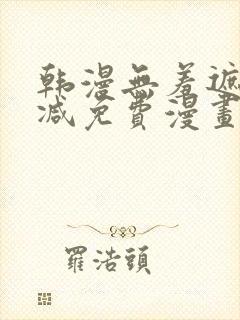 韩漫無羞遮
减免費漫畫
羅浩頭